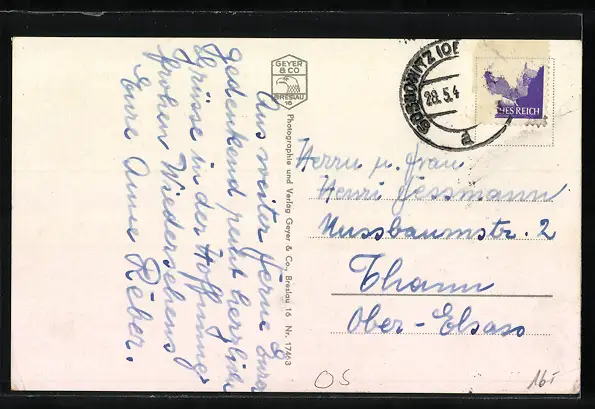 Aus weiter Ferne Eurer
gedenkend recht herzliche
Grüsse in der Hoffnung
frohen Wiedersehens
Eure Anne Reber.
GEYER
& CO
BRESLAU
16
Photographie und Verlag Geyer & Co., Breslau 16 Nr. 17463
SOSNOWITZ (OB
28.5.4
a
HES REICH
Herrn u. Frau
Henri Jessmann
Nussbaumstr. 2
Thann
Ober-Elsass
OS